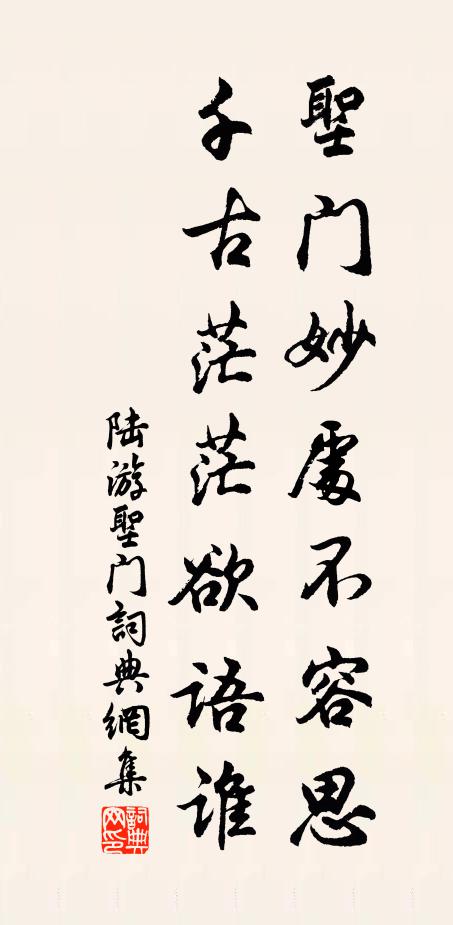 聖门妙處不容思
千古茫茫欲语谁
陆游聖门詞典網集
詞典网印